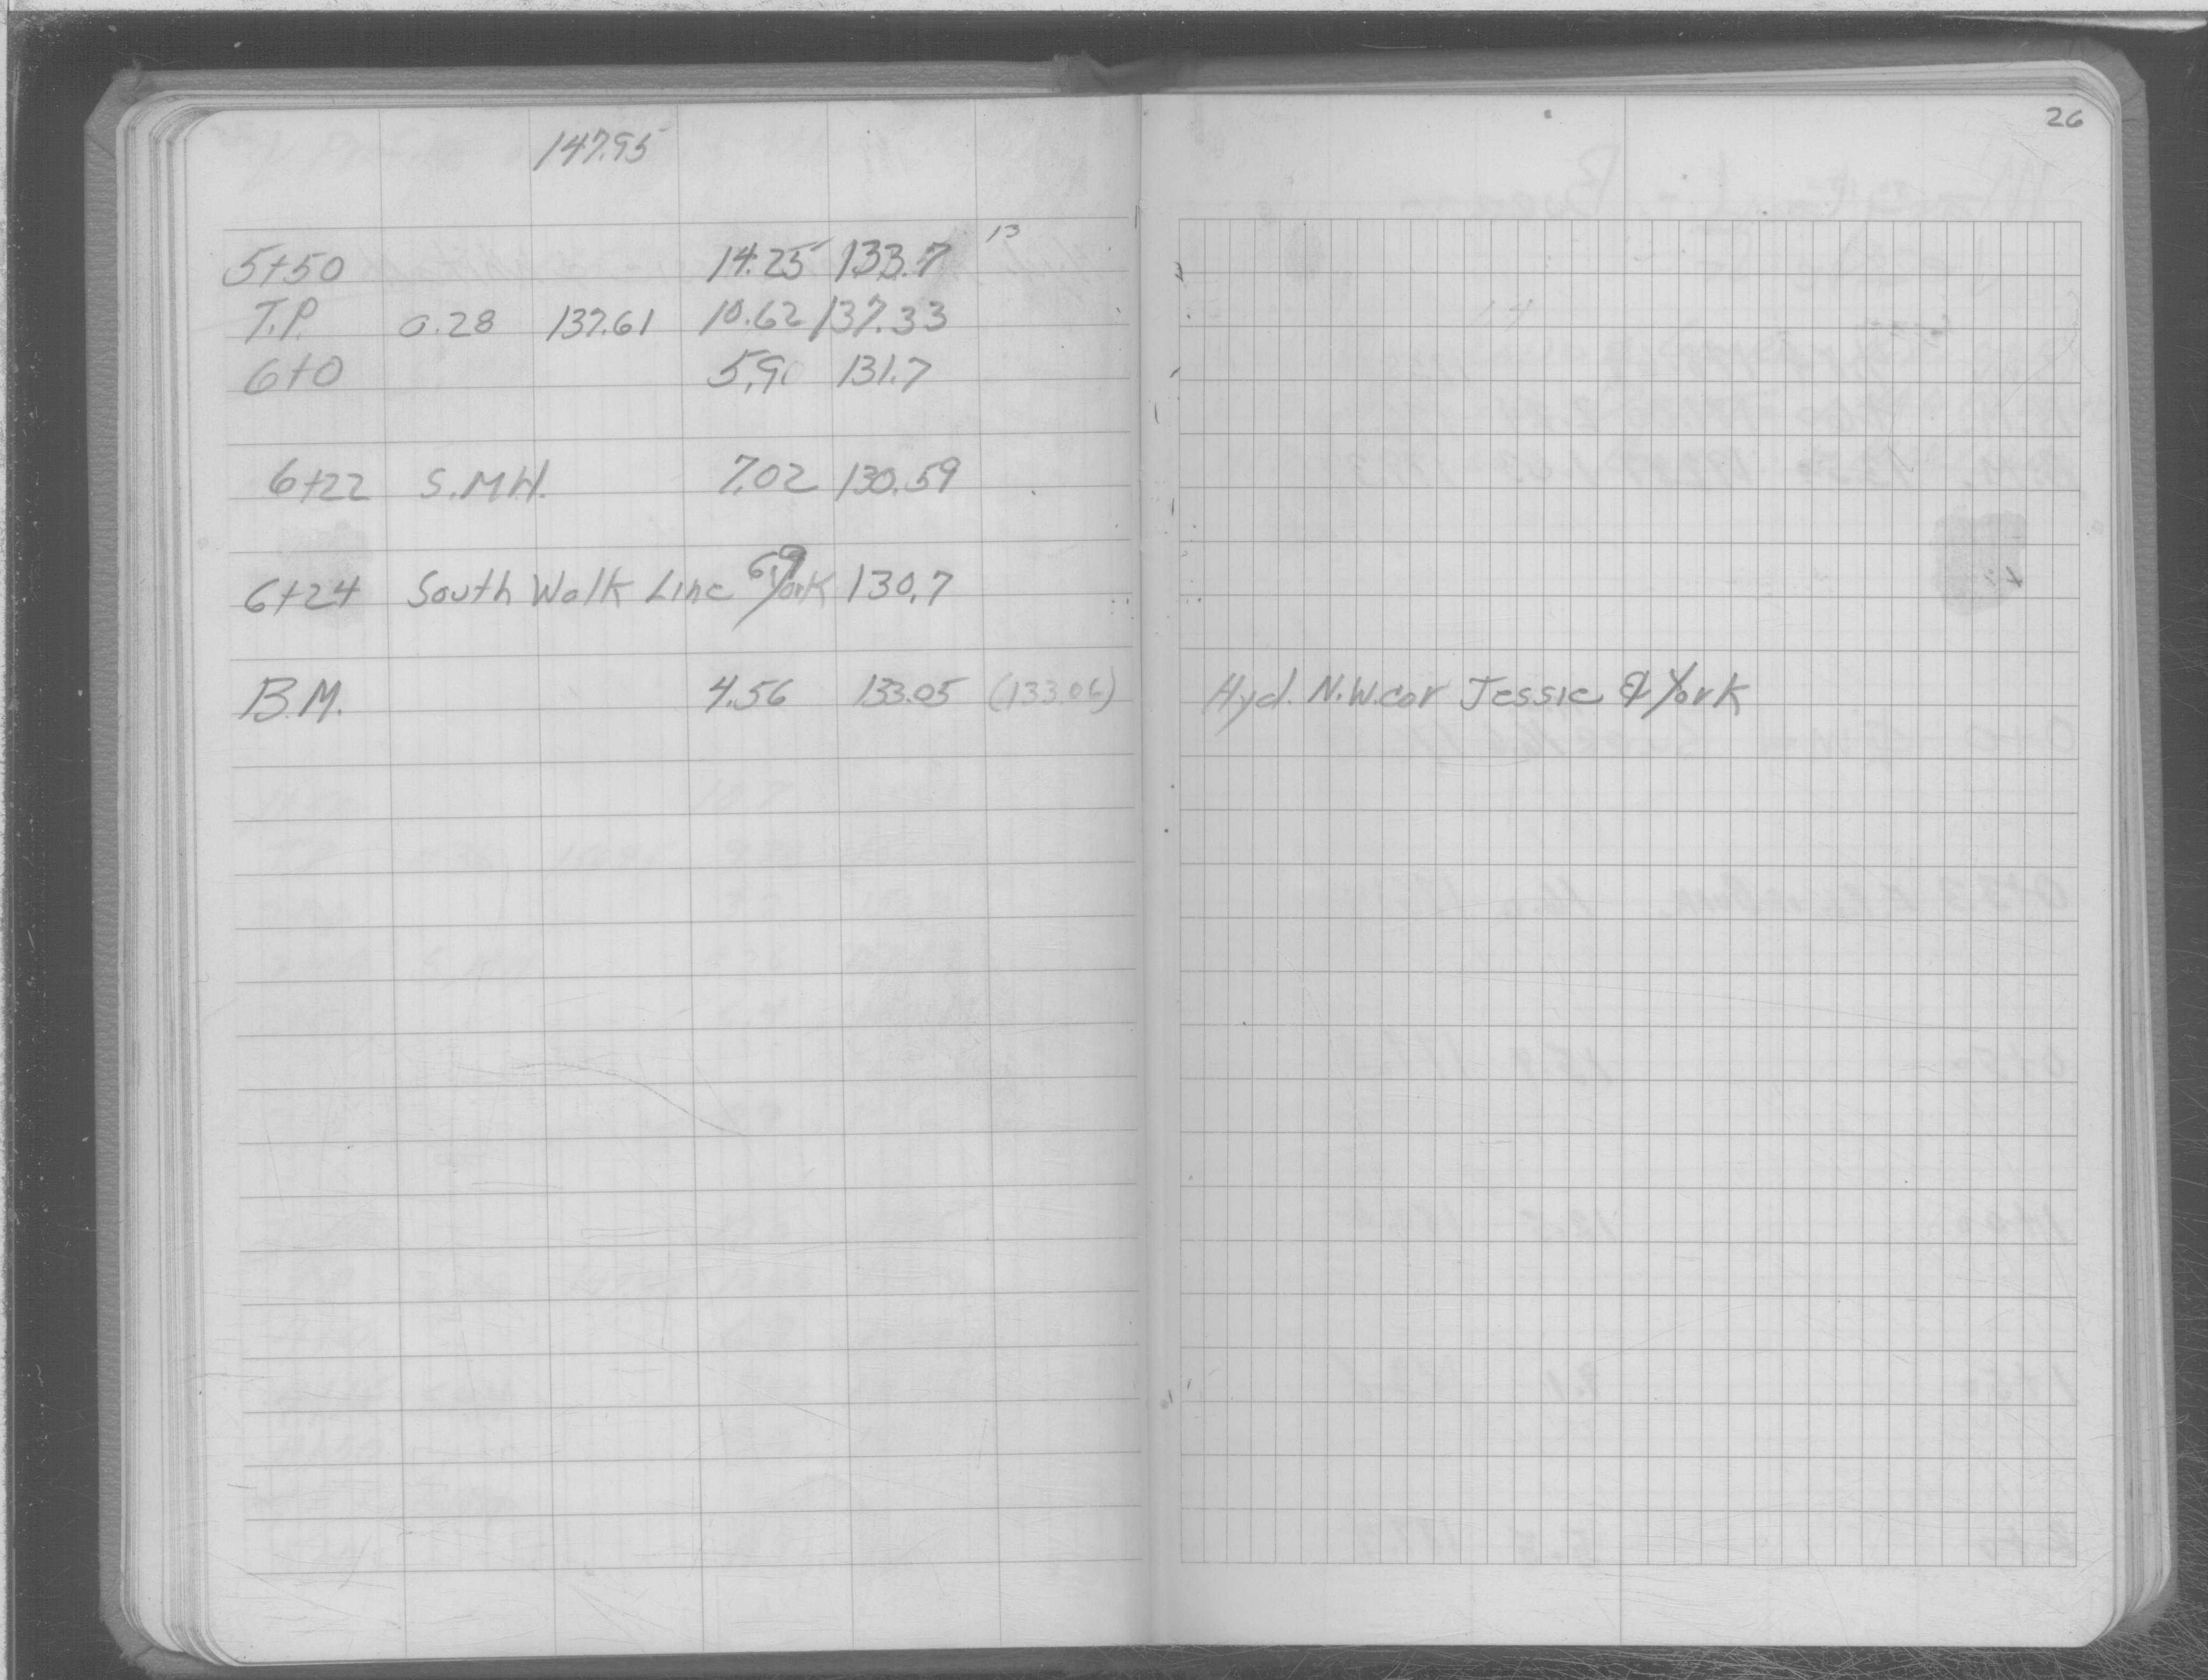 26
147.95
5+50 14.25 133.7 13
T.P. 0.28 137.61 10.62 137.33
6+0 5.9 131.7
6+22 S.M.H. 7.02 130.59
6+24 South Walk Line York 6.9 130.7
B.M. 4.56 133.05 (133.06) Hyd. N.W. cor Jessie & York